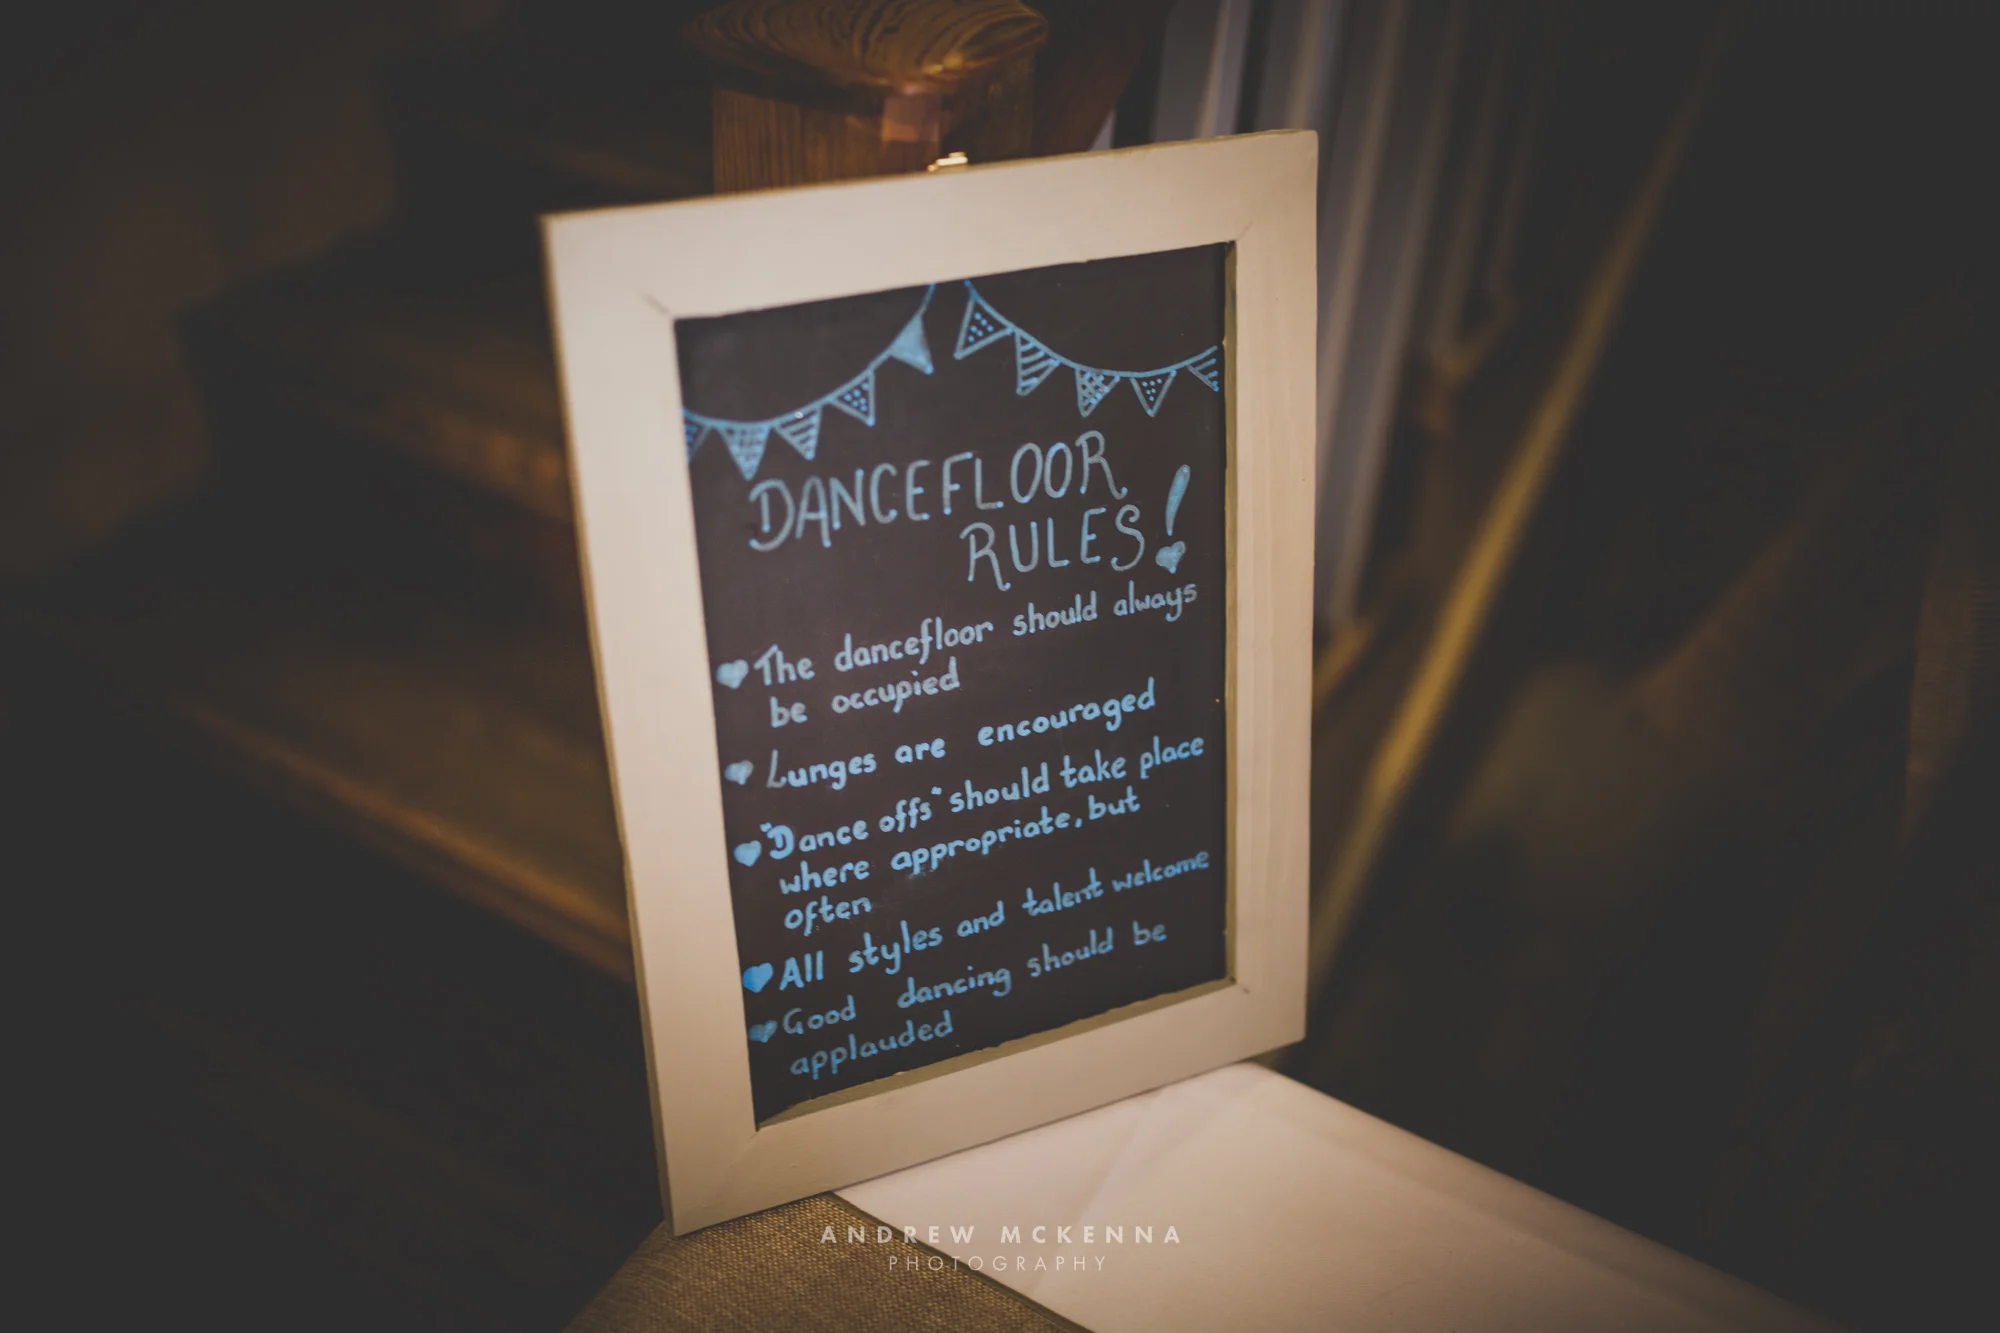 DANCEFLOOR
RULES!
The dancefloor should always
be occupied
Lunges are encouraged
"Dance offs" should take place
where appropriate, but
often
All styles and talent welcome
Good dancing should be
applauded
ANDREW MCKENNA
PHOTOGRAPHY